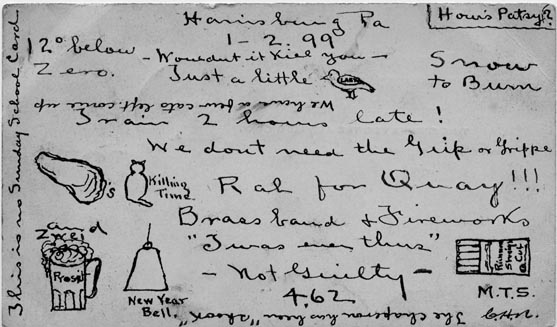 Harrisburg Pa
How's Patsy?
1 - 2 . 99
12° below
Zero.
- Wouldnt it Kill you -
Just a little
LARK
Snow
to Burn
We have a few cats left. come up
Train 2 hours late!
We dont need the Grip or Grippe
's
Killing
Time
Rah for Quay!!!
and
Zwei
Prosit
Brass band & Fireworks
"Twas ever thus"
- Not Guilty -
4.62
New Year
Bell.
M.T.S.
The Chaperon has been "shook"
This is no Sunday School Card.